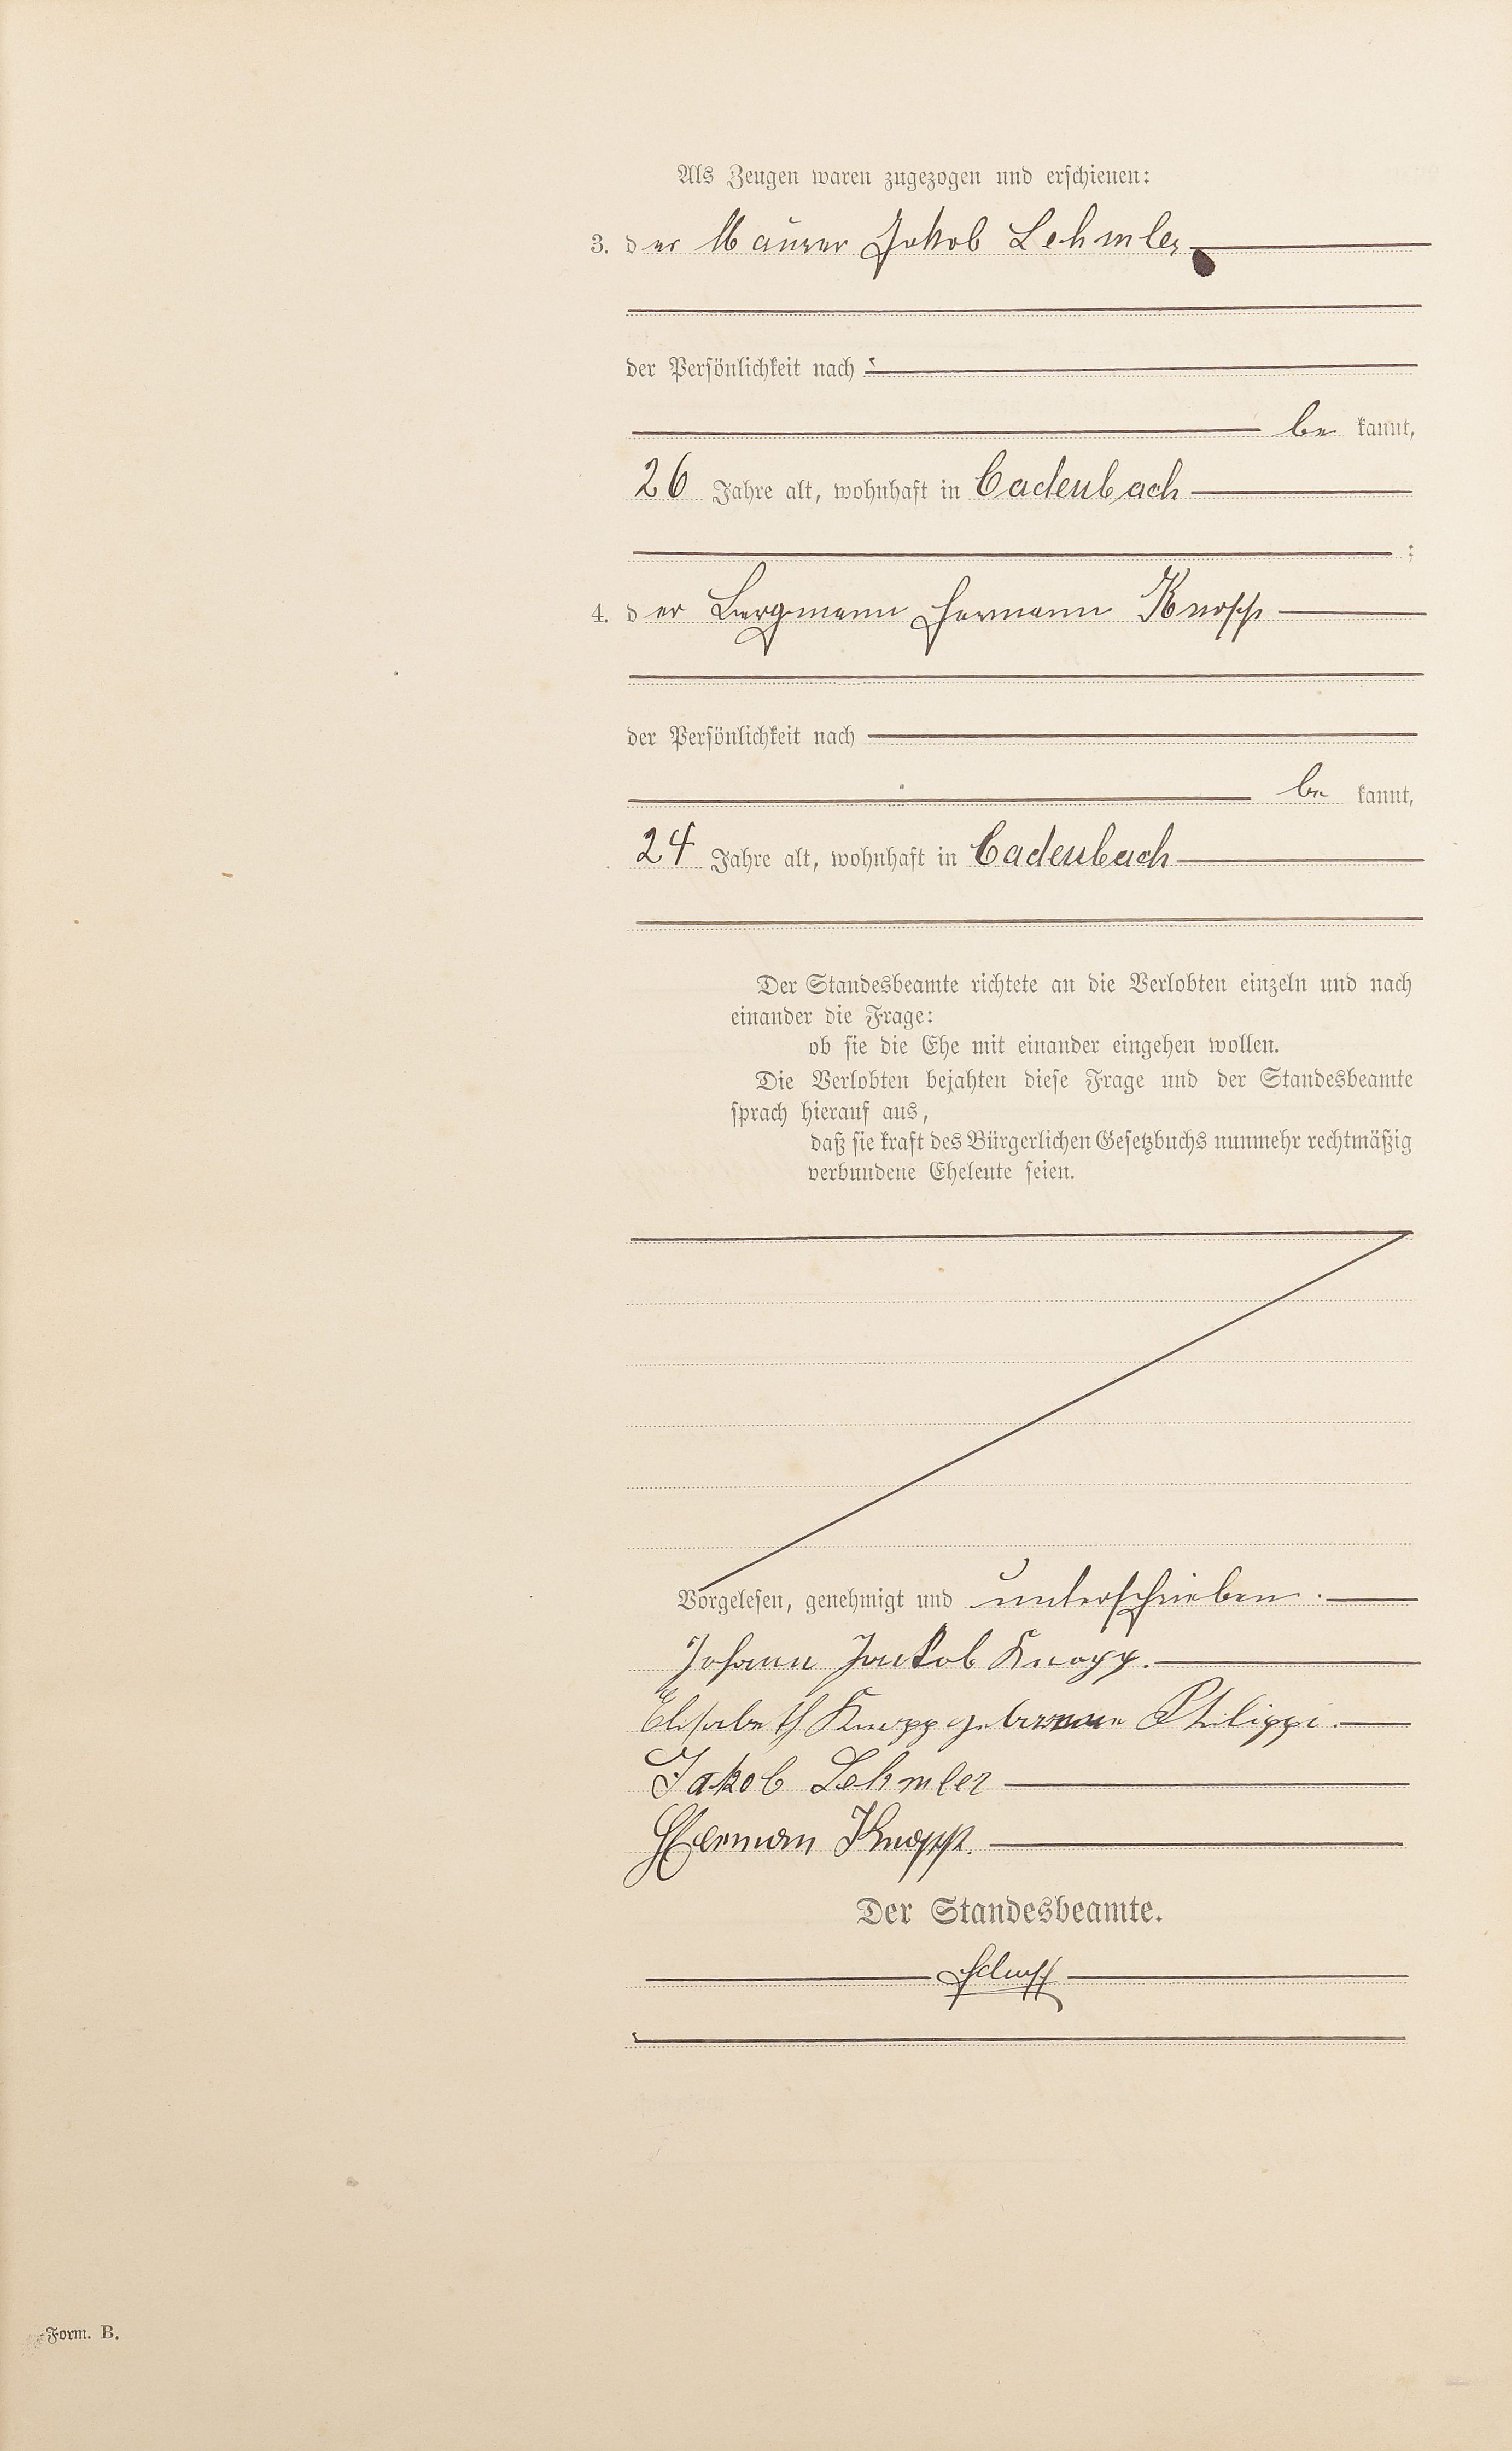 Als Zeugen waren zugezogen und erschienen:
3. der Maurer Jakob Lehmler
der Persönlichkeit nach
be kannt,
26 Jahre alt, wohnhaft in Cadenbach
;
4. der Bergmann Hermann Knopp
der Persönlichkeit nach
be kannt,
24 Jahre alt, wohnhaft in Cadenbach
Der Standesbeamte richtete an die Verlobten einzeln und nach
einander die Frage:
ob sie die Ehe mit einander eingehen wollen.
Die Verlobten bejahten diese Frage und der Standesbeamte
sprach hierauf aus,
daß sie kraft des Bürgerlichen Gesetzbuchs nunmehr rechtmäßig
verbundene Eheleute seien.
Vorgelesen, genehmigt und unterschrieben.
Johann Jackob Knopp.
Elisabeth Knopp geborene Philippi.
Jakob Lehmler
Herman Knopp.
Der Standesbeamte.
Form. B.